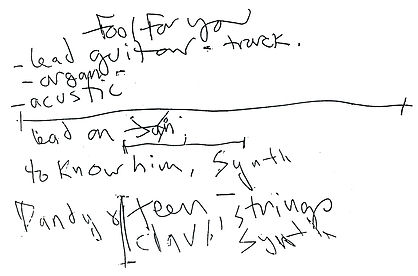 Fool for you
- lead guitar - track.
- organ
- acustic
lead on
to know him, Synth
Dandy & teen, strings
clav, synth